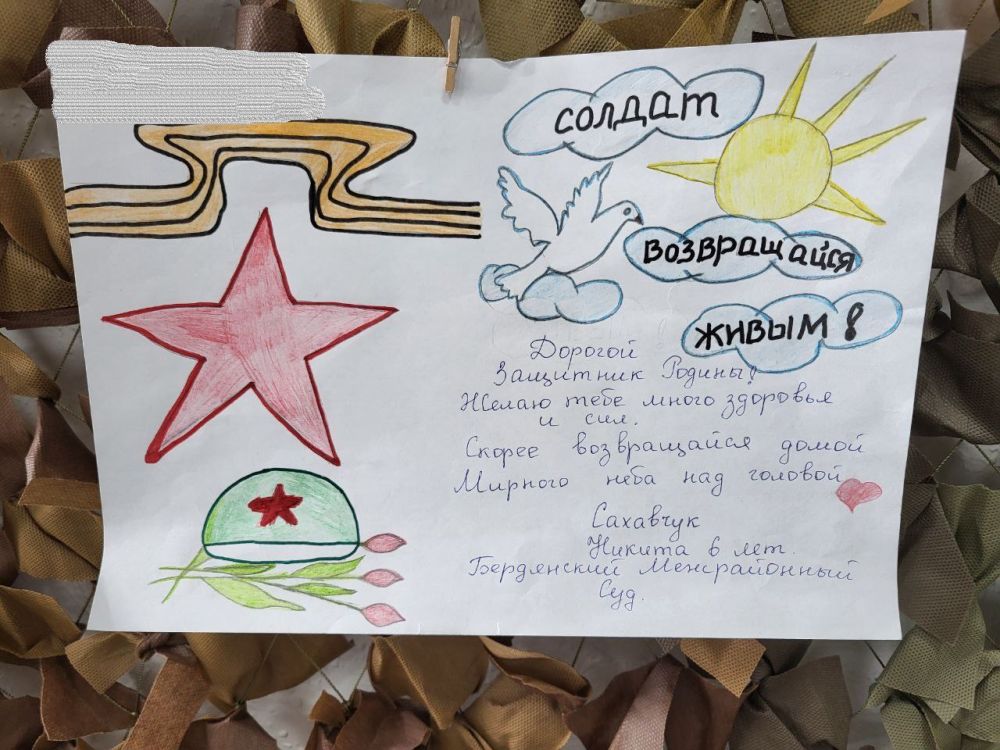 солдат
возвращайся
живым!
Дорогой
Защитник Родины!
Желаю тебе много здоровья
и сил.
Скорее возвращайся домой
Мирного неба над головой
Сахавчук
Никита 6 лет.
Бердянский Межрайонный
Суд.